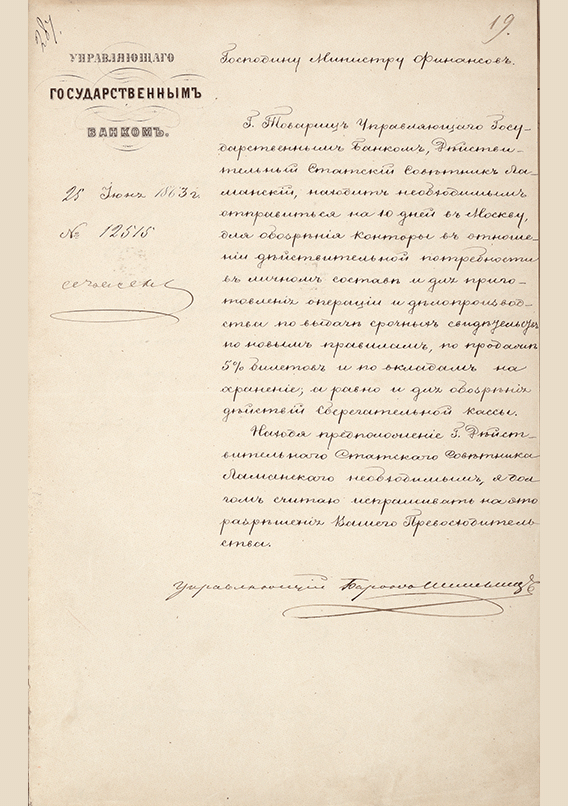 287.
19.
УПРАВЛЯЮЩАГО
ГОСУДАРСТВЕННЫМЪ
БАНКОМЪ.
25 Іюня 1863 г.
№ 12515
Господину Министру Финансовъ.
Г. Товарищъ Управляющаго Госу-
дарственнымъ Банкомъ, Дѣйстви-
тельный Статскій Совѣтникъ Ла-
манскій, находитъ необходимымъ
отправиться на 10 дней въ Москву,
для обозрѣнія конторы въ отноше-
ніи дѣйствительной потребности
въ личномъ составѣ и для приго-
товленія операціи и дѣлопроизвод-
ства по выдачѣ срочныхъ свидѣтельствъ
по новымъ правиламъ, по продажѣ
5% билетовъ и по вкладамъ на
храненіе; а равно и для обозрѣнія
дѣйствій Сберегательной кассы.
Находя предположеніе Г. Дѣйст-
вительнаго Статскаго Совѣтника
Ламанскаго необходимымъ, я дол-
гомъ считаю испрашивать на это
разрѣшенія Вашего Превосходитель-
ства.
Управляющій Баронъ Штиглицъ